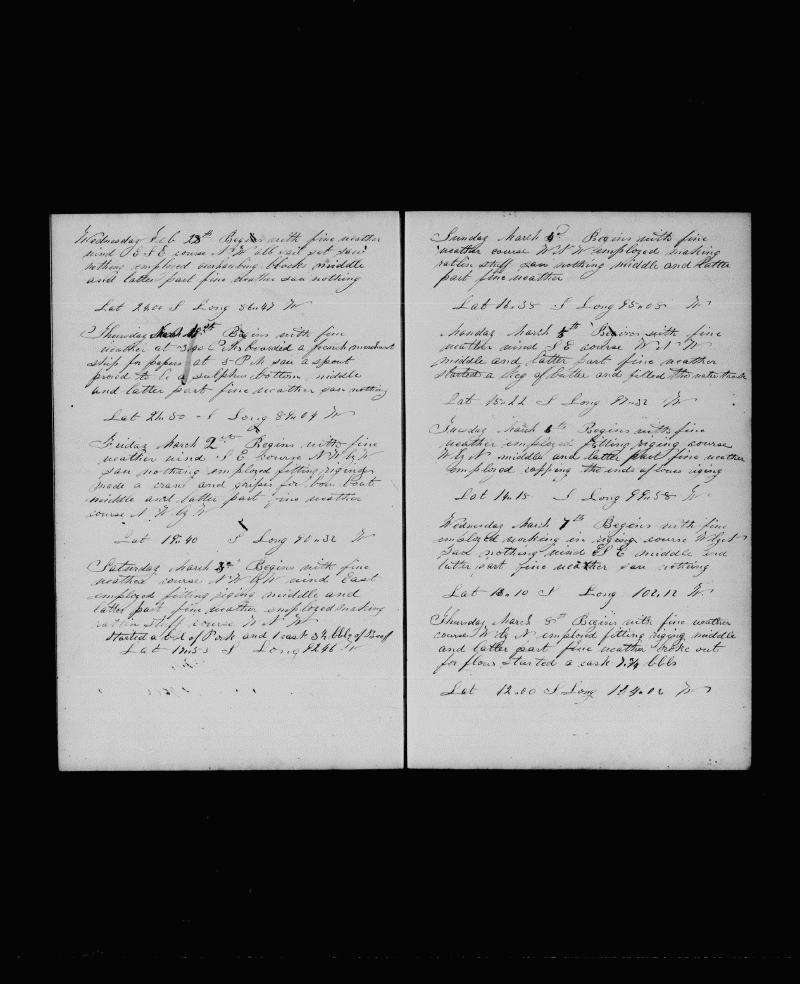 Wednesday Feb 28th Begins with fine weather
wind E S E course N W all sail set saw
nothing employed overhauling blocks middle
and latter part fine weather saw nothing
Lat 23.00 S Long 86.47 W
Thursday March 1st Begins with fine
weather at boarded a french merchant
ship for papers at 5 P M saw a spout
proved to be a sulphur bottom middle
and latter part fine weather saw nothing
Lat 21.50 S Long 89.04 W
Friday March 2nd Begins with fine
weather wind S E course N W by W
saw nothing employed fitting riging
made a crane and gripes for bow boat
middle and latter part fine weather
course N W by W
Lat 19.40 S Long 90.32 W
Saturday March 3d Begins with fine
weather course N W by W wind East
employed fitting riging middle and
latter part fine weather employed making
ratlin stuff course W N W
Started a bbl of Pork and 1 cask 3½ bbls of Beef
Lat S Long 92.46 W
Sunday March 4 Begins with fine
weather course W N W employed making
ratlin stuff saw nothing middle and latter
part fine weather
Lat 16.38 S Long 95.08 W
Monday March 5th Begins with fine
weather wind S E course W N W
middle and latter part fine weather
started a keg of butter and filled the water tank
Lat 15.22 S Long 97.32 W
Tuesday March 6th Begins with fine
weather employed fitting riging course
W by N middle and latter part fine weather
employed capping the ends of riging
Lat 14.18 S Long 99.58 W
Wednesday March 7th Begins with fine
employed working in riging course W by N
saw nothing wind S E middle and
latter part fine weather saw nothing
Lat 13.10 S Long 102.12 W
Thursday March 8th Begins with fine weather
course W by N employed fitting riging middle
and latter part fine weather broke out
for flour started a cask 2¾ bbls
Lat 12.00 S Long 104.02 W